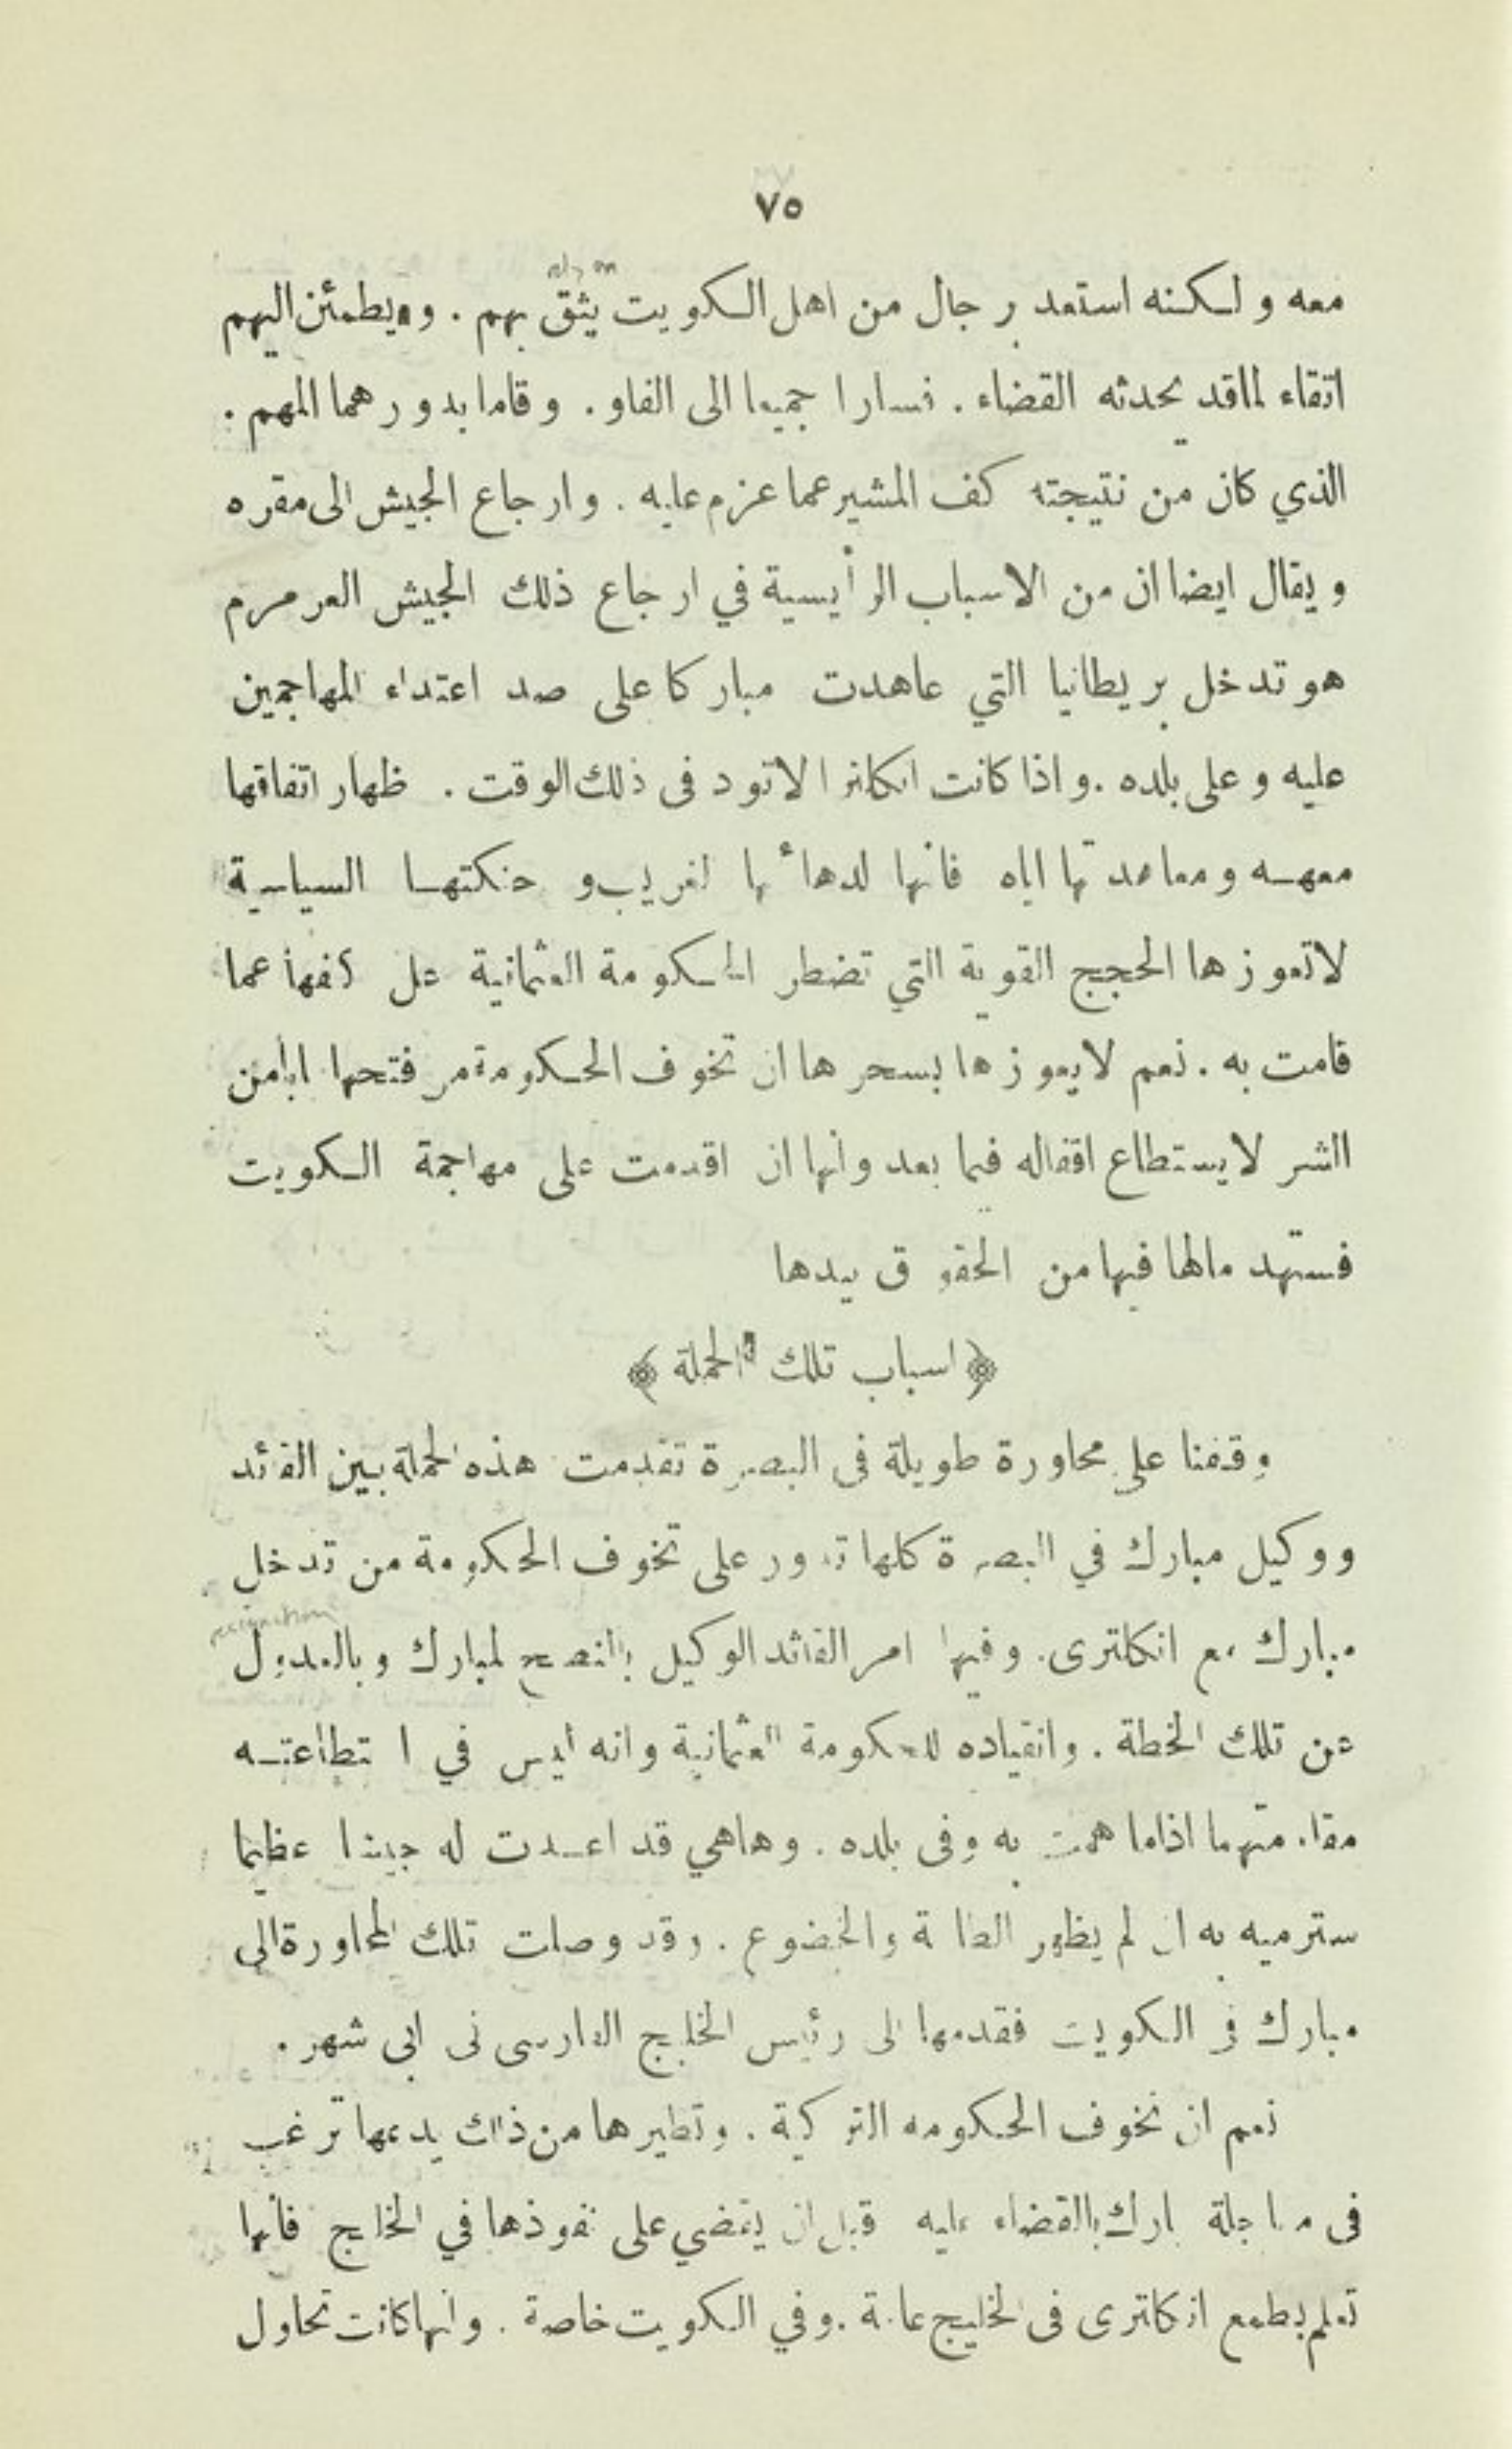 ٧٥
معه ولكنه استعد برجال من اهل الكويت يثق بهم . ويطمئن اليهم
اتقاء لماقد يحدثه القضاء . فسارا جميعا الى الفاو . وقاما بدورهما المهم .
الذي كان من نتيجته كف المشير عما عزم عليه . وارجاع الجيش الى مقره
ويقال ايضا ان من الاسباب الرأيسية في ارجاع ذلك الجيش العرمرم
هو تدخل بريطانيا التي عاهدت مباركا على صد اعتداء المهاجمين
عليه وعلى بلده . واذا كانت انكلترا لاتود فى ذلك الوقت . ظهار اتفاقها
معه ومعاهدتها اياه فانها لدهائها الغريب وحنكتها السياسية
لاتعوزها الحجج القوية التي تضطر الحكومة العثمانية على كفها عما
قامت به . نعم لايعوزها بسحرها ان تخوف الحكومة من فتحها ابا من
الشر لايستطاع اقفاله فيما بعد وانها ان اقدمت على مهاجمة الكويت
فستهد مالها فيها من الحقوق بيدها
﴿ اسباب تلك الحملة ﴾
وقفنا على محاورة طويلة فى البصرة تقدمت هذه الحملة بين القائد
ووكيل مبارك في البصرة كلها تدور على تخوف الحكومة من تدخل
مبارك مع انكلترى . وفيها امر القائد الوكيل بالنصح لمبارك وبالعدول
عن تلك الخطة . وانقياده للحكومة العثمانية وانه ليس في ا تطاعته
مقاومتهما اذاما همت به وفى بلده . وهاهي قد اعدت له جيشا عظيما
سترميه به ان لم يظهر الطاعة والخضوع . وقد وصلت تلك المحاورة الى
مبارك فى الكويت فقدمها الى رئيس الخليج الفارسى فى ابى شهر .
نعم ان تخوف الحكومه التركية . وتطيرها من ذلك يدعها ترغب
فى معاجلة مبارك بالقضاء عليه قبل ان يقضي على نفوذها في الخليج فانها
تعلم بطمع انكلترى فى الخليج عامة . وفي الكويت خاصة . وانها كانت تحاول